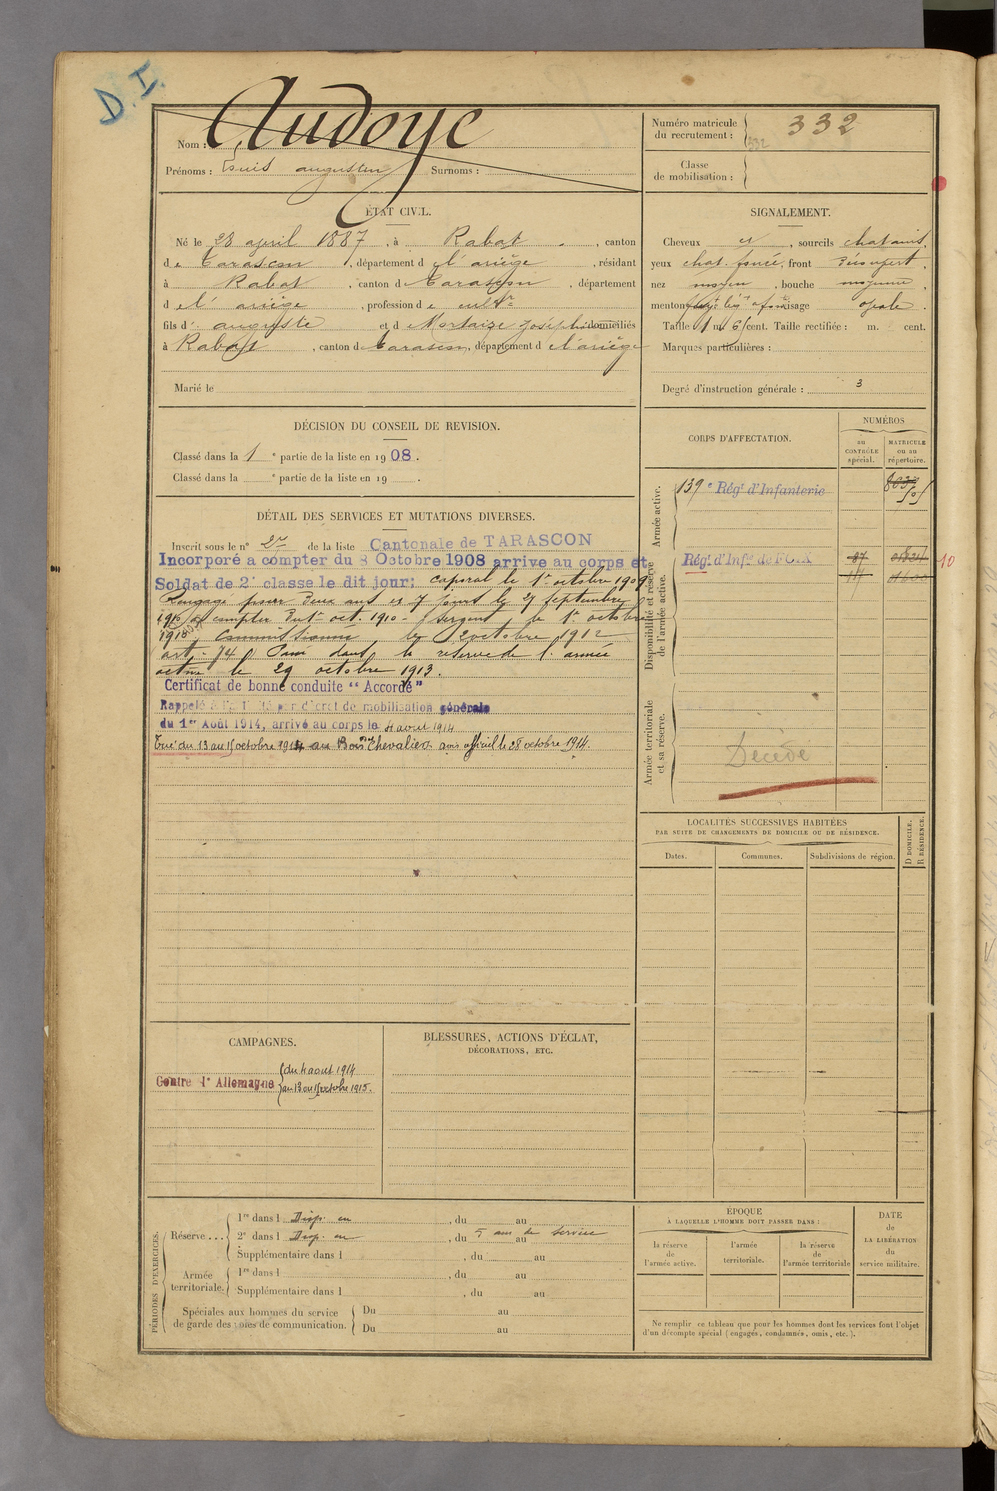 D. I.
Nom : Audoye
Prénoms : Louis augustin Surnoms :
Numéro matricule du recrutement : 332
332
Classe de mobilisation :
ÉTAT CIVIL.
Né le 28 april 1887, à Rabat, canton
de Tarascon, département d l'ariège, résidant
à Rabat, canton d Tarascon, département
d el' ariège, profession de cultr
fils d' auguste et d Mortaize Joséphine domiciliés
à Rabat, canton d Tarascon, département d el'ariège
Marié le
SIGNALEMENT.
Cheveux et, sourcils chatains,
yeux chat. foncé, front découvert,
nez moyen, bouche moyenne,
menton visage ovale.
Taille 1 m. 61 cent. Taille rectifiée : m. cent.
Marques particulières :
Degré d'instruction générale : 3
DÉCISION DU CONSEIL DE REVISION.
Classé dans la 1e partie de la liste en 1908.
Classé dans la e partie de la liste en 19 .
DÉTAIL DES SERVICES ET MUTATIONS DIVERSES.
Inscrit sous le n° 27 de la liste Cantonale de TARASCON
Incorporé à compter du 8 Octobre 1908 arrive au corps et
Soldat de 2e classe le dit jour; caporal le 1er octobre 1909
Rengagé pour deux ans et 7 jours le 27 septembre
1910 à compter du 1er oct. 1910 - sergent le 1er octobre
1910 Commissionné le 2 octobre 1912
art. 74 Passé dans la reserve de l'armée
active le 29 octobre 1913.
Certificat de bonne conduite "Accordé"
Rappelé à l'activité par décret de mobilisation générale
du 1er Août 1914, arrivé au corps le 4 aout 1914
Tué du 13 au 15 octobre 1914 au Bois Chevalier avis officiel le 28 octobre 1914.
CORPS D'AFFECTATION.
NUMÉROS
au CONTRÔLE spécial.
MATRICULE ou au répertoire.
Armée active.
139e Régt d'Infanterie
505
Disponibilité et réserve de l'armée active.
Régt d'Infie de FOIX 87
10
Armée territoriale et sa réserve.
Décédé
LOCALITÉS SUCCESSIVES HABITÉES
PAR SUITE DE CHANGEMENTS DE DOMICILE OU DE RÉSIDENCE.
Dates. Communes. Subdivisions de région.
D DOMICILE.
R RÉSIDENCE.
CAMPAGNES.
Contre l'Allemagne
du 4 aout 1914
au 13 au 15 octobre 1915.
BLESSURES, ACTIONS D'ÉCLAT,
DÉCORATIONS, ETC.
PÉRIODES D'EXERCICES.
Réserve ...
1re dans l Disp. en, du au
2e dans l Disp. en, du 5 ans de service au
Supplémentaire dans l, du au
Armée territoriale.
1re dans l, du au
Supplémentaire dans l, du au
Spéciales aux hommes du service
de garde des voies de communication.
Du au
Du au
ÉPOQUE
À LAQUELLE L'HOMME DOIT PASSER DANS :
la réserve de l'armée active.
l'armée territoriale.
la réserve de l'armée territoriale
DATE de LA LIBÉRATION du service militaire.
Ne remplir ce tableau que pour les hommes dont les services font l'objet
d'un décompte spécial (engagés, condamnés, omis, etc.).